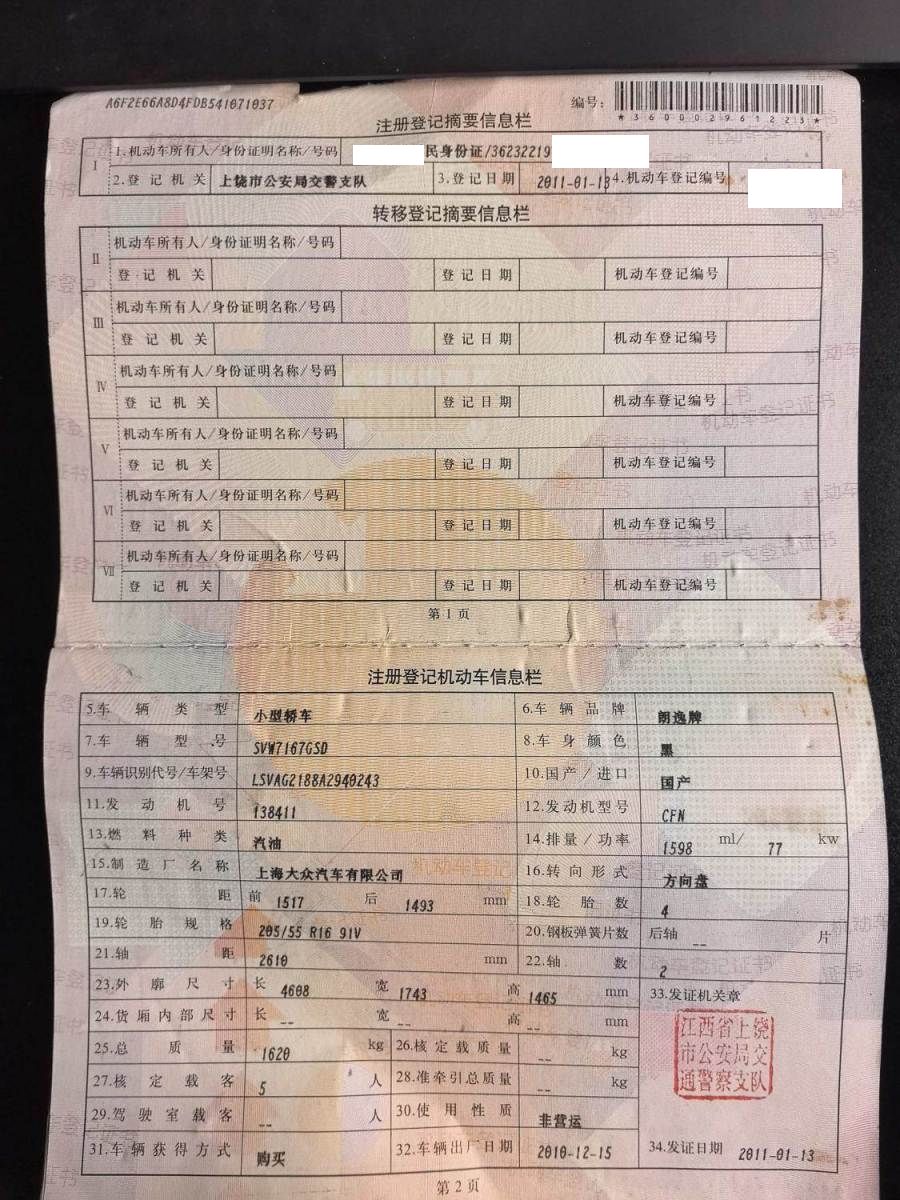 A6F2E66A8D4FDB541071037 编号：
*360002961223*
注册登记摘要信息栏
I 1.机动车所有人/身份证明名称/号码 民身份证/36232219
2.登记机关 上饶市公安局交警支队 3.登记日期 2011-01-13 4.机动车登记编号
转移登记摘要信息栏
II 机动车所有人/身份证明名称/号码
登记机关 登记日期 机动车登记编号
III 机动车所有人/身份证明名称/号码
登记机关 登记日期 机动车登记编号
IV 机动车所有人/身份证明名称/号码
登记机关 登记日期 机动车登记编号
V 机动车所有人/身份证明名称/号码
登记机关 登记日期 机动车登记编号
VI 机动车所有人/身份证明名称/号码
登记机关 登记日期 机动车登记编号
VII 机动车所有人/身份证明名称/号码
登记机关 登记日期 机动车登记编号
第1页
注册登记机动车信息栏
5.车辆类型 小型轿车 6.车辆品牌 朗逸牌
7.车辆型号 SVW7167GSD 8.车身颜色 黑
9.车辆识别代号/车架号 LSVAG2188A2940243 10.国产/进口 国产
11.发动机号 138411 12.发动机型号 CFN
13.燃料种类 汽油 14.排量/功率 1598 ml/ 77 kw
15.制造厂名称 上海大众汽车有限公司 16.转向形式 方向盘
17.轮距 前 1517 后 1493 mm 18.轮胎数 4
19.轮胎规格 205/55 R16 91V 20.钢板弹簧片数 后轴 -- 片
21.轴距 2610 mm 22.轴数 2
23.外廓尺寸 长 4608 宽 1743 高 1465 mm 33.发证机关章
24.货厢内部尺寸 长 -- 宽 -- 高 -- mm
25.总质量 1620 kg 26.核定载质量 -- kg
27.核定载客 5 人 28.准牵引总质量 -- kg
江西省上饶
市公安局交
通警察支队
29.驾驶室载客 -- 人 30.使用性质 非营运
31.车辆获得方式 购买 32.车辆出厂日期 2010-12-15 34.发证日期 2011-01-13
第2页